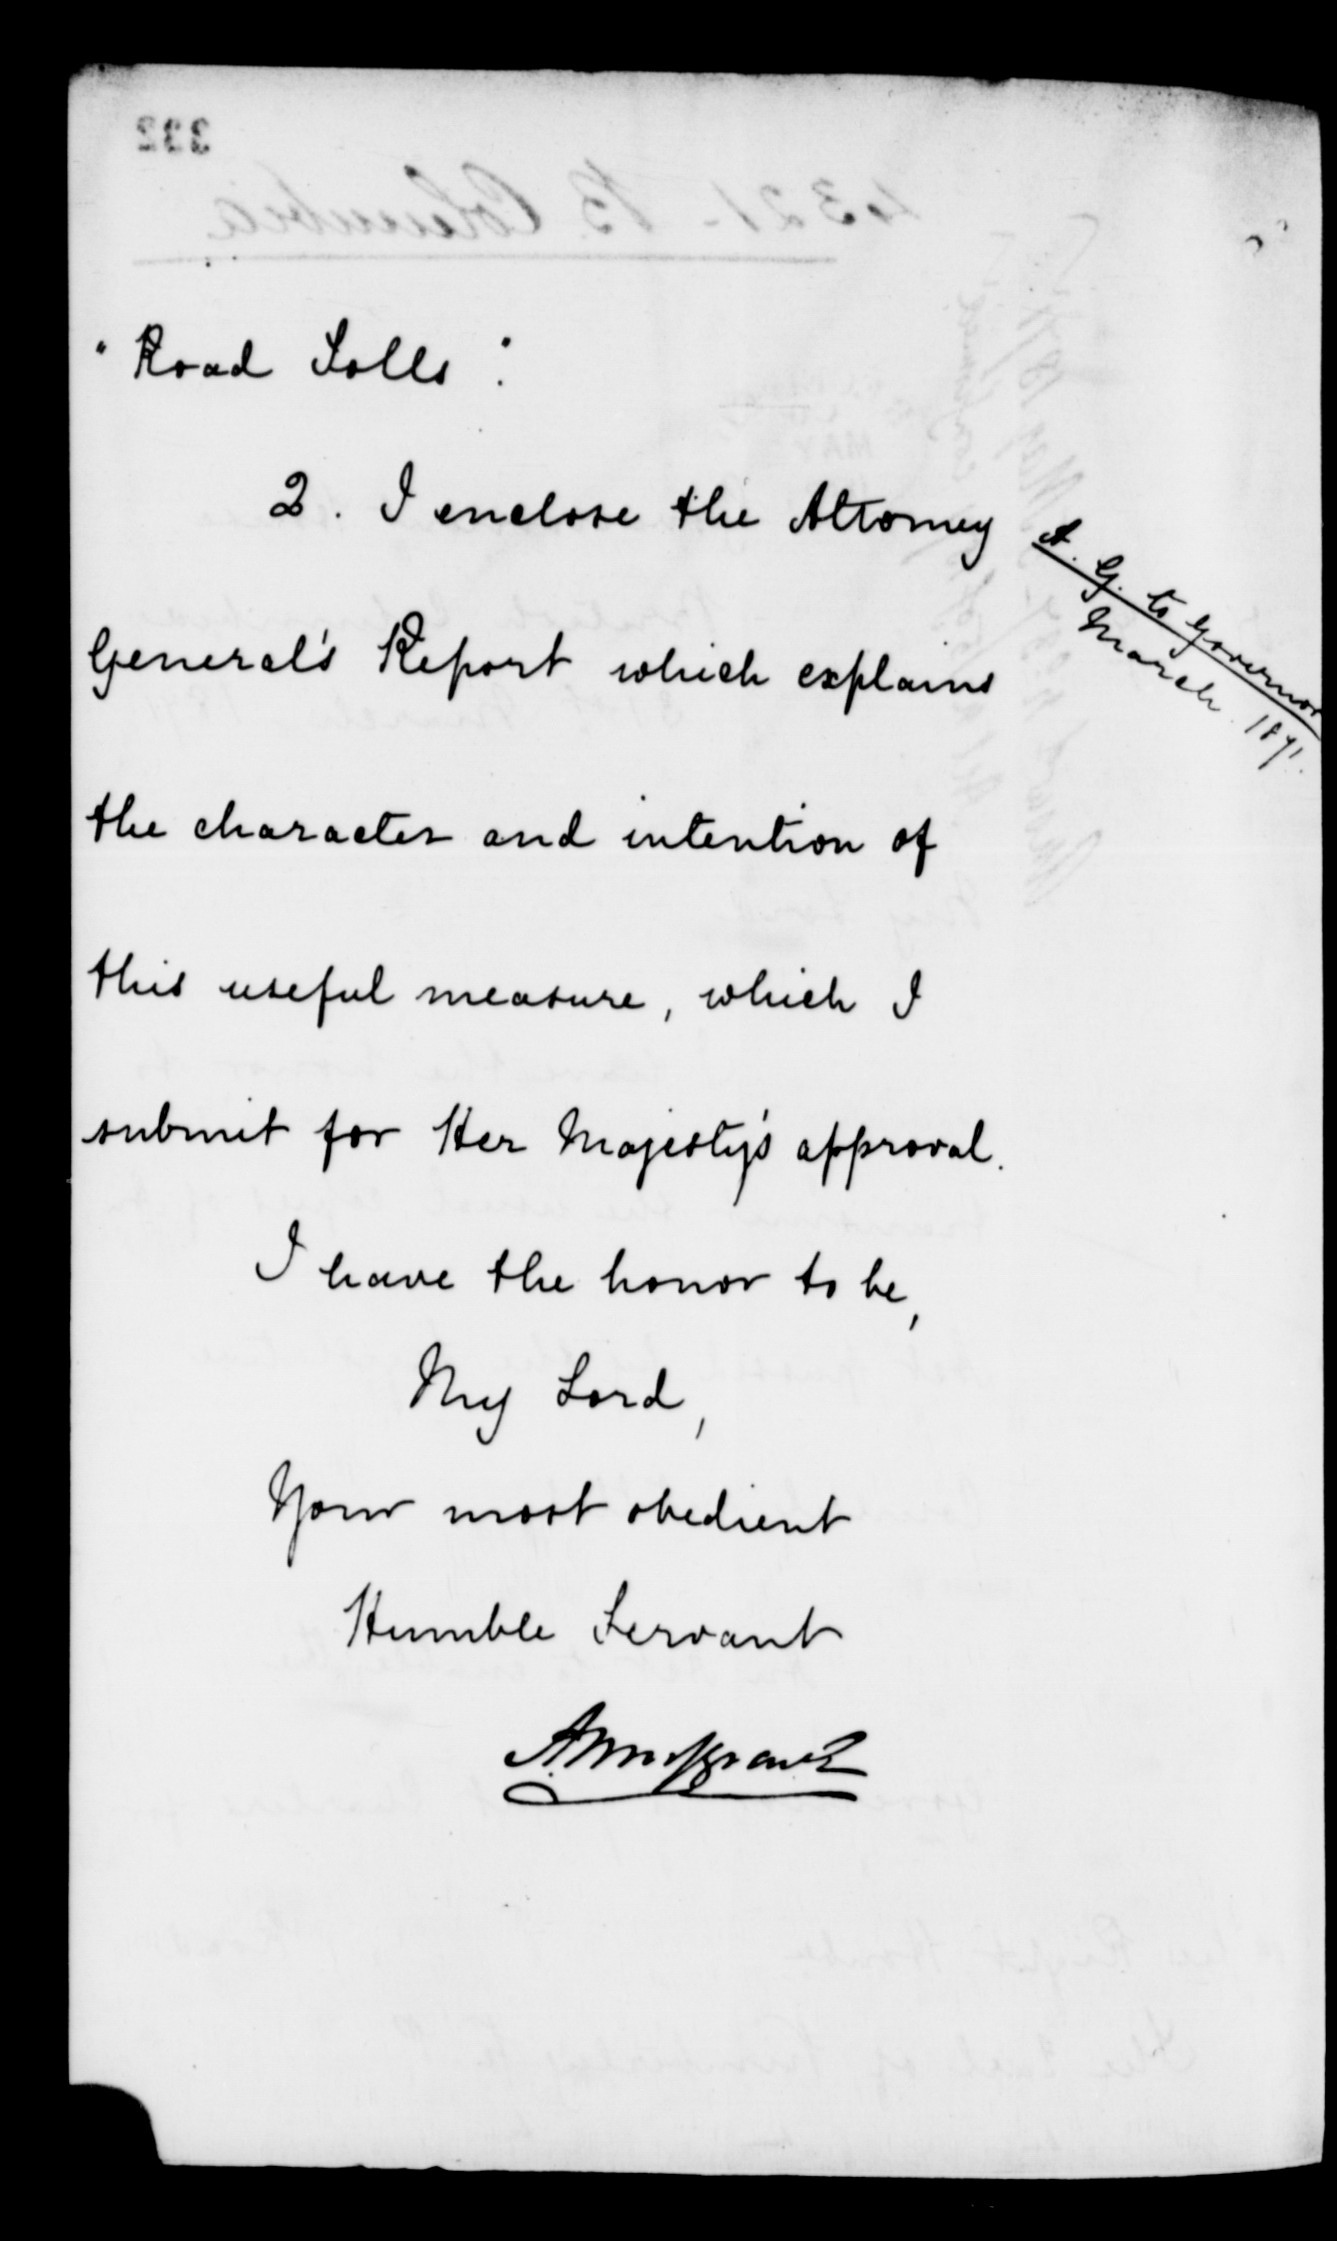 "Road Tolls".
2. I enclose the Attorney
General's Report which explains
the character and intention of
this useful measure, which I
submit for Her Majesty's approval.
I have the honor to be,
My Lord,
Your most obedient
Humble Servant
A. Musgrave
A. G. to Governor
March 1871.